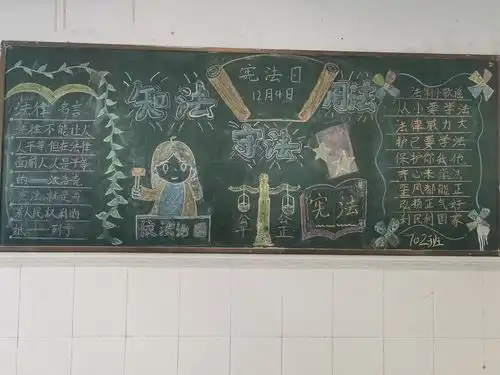 法律名言
法律不能让人
人平等但在法律
面前人人是平等
的——波洛克
宪法就是一
着人民权利的
纸——列宁
知法
宪法日
12月4日
用法
守法
公平
公正
宪法
依法治国
法制小歌谣
从小要学法
法律威力大
护己要学法
保护你我他
齐心来
歪风都能正
弘扬正气好
利民利国家
702班